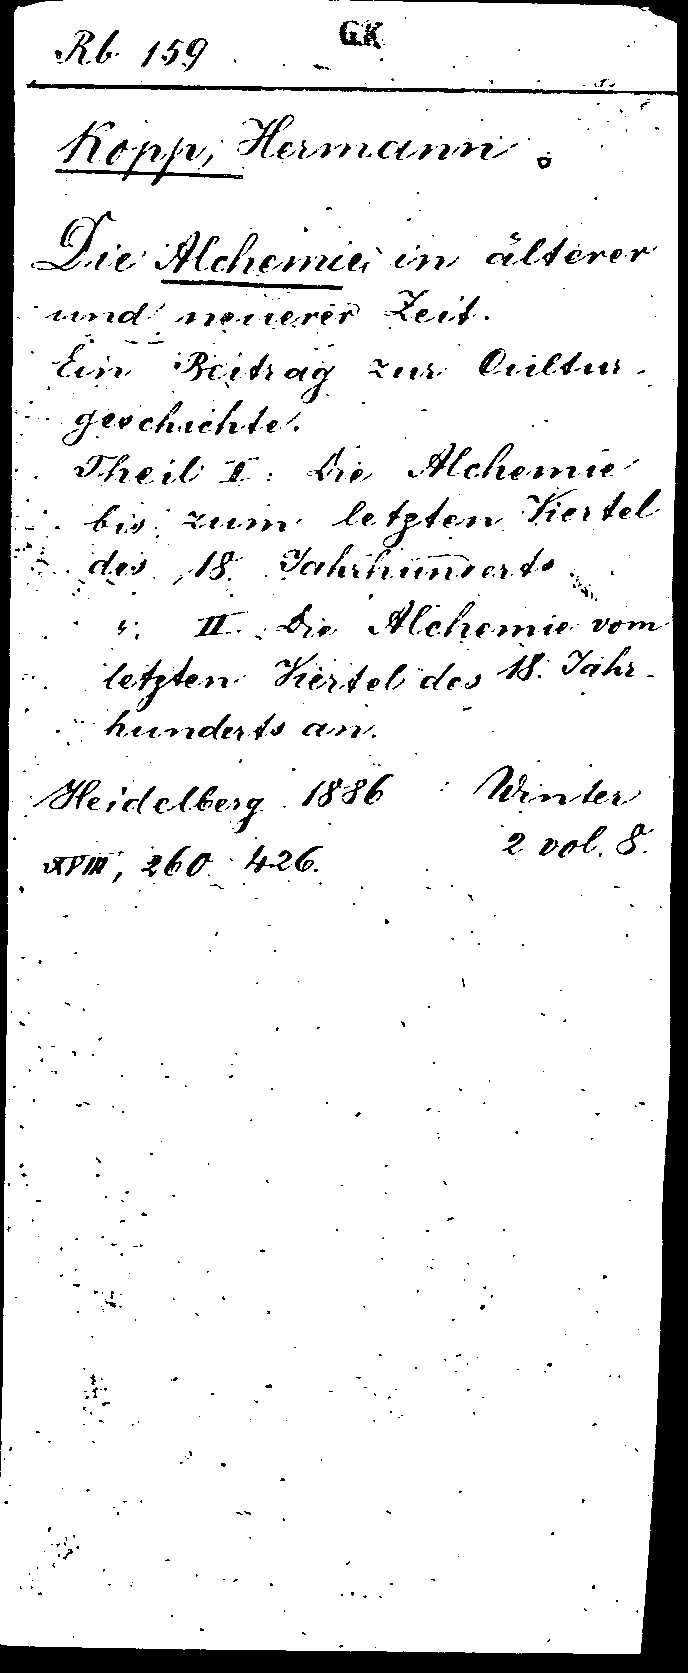 Rb 159 GK
Kopp, Hermann.
Die Alchemie in älterer
und neuerer Zeit.
Ein Beitrag zur Cultur-
geschichte.
Theil I: Die Alchemie
bis zum letzten Viertel
des 18. Jahrhunderts
" II. Die Alchemie vom
letzten Viertel des 18. Jahr-
hunderts an.
Heidelberg 1886 Winter
2 vol. 8.
XVIII, 260 426.